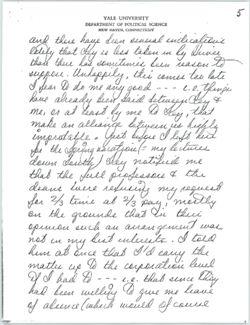 5
YALE UNIVERSITY
DEPARTMENT OF POLITICAL SCIENCE
NEW HAVEN, CONNECTICUT
and there have been several indications
lately that Cey is less taken in by
than there has sometimes been reason to
suppose. Unhappily, this comes too late
I fear to do me any good --- i.e. things
have already been said between Cey &
me, or at least by me to Cey, that
make an alliance between us highly
improbable. Just before I left here
for the spring vacation (= my lectures
down South) Cey notified me
that the full professors & the
deans were refusing my request
for 2/3 time at 2/3 pay, mostly
on the grounds that in their
opinion such an arrangement was
not in my best interests. I told
him at once that I'd carry the
matter up to the corporation level
if I had to --- i.e. that since they
had been willing to give me leave
of absence (which would of course